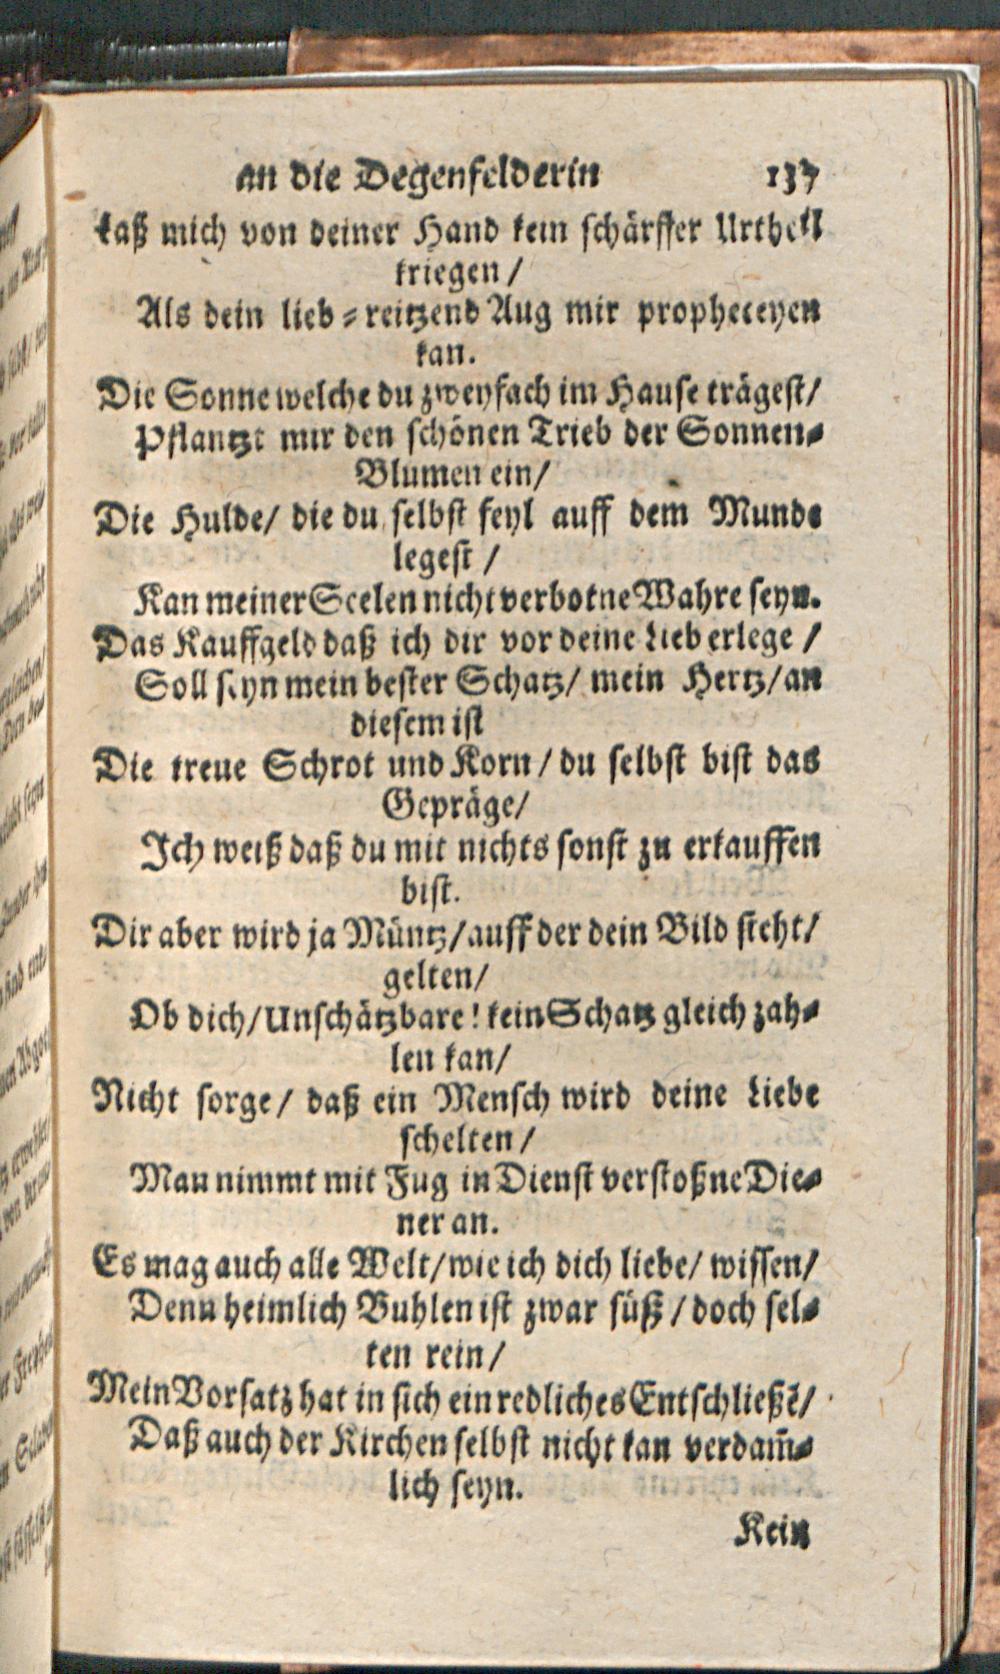 an die Degenfelderin 137
Laß mich von deiner Hand kein schärffer Urtheil
kriegen /
Als dein lieb⸗reitzend Aug mir propheceyen
kan.
Die Sonne welche du zweyfach im Hause trägest/
Pflantzt mir den schönen Trieb der Sonnen⸗
Blumen ein/
Die Hulde/ die du selbst feyl auff dem Munde
legest /
Kan meiner Seelen nicht verbotne Wahre seyn.
Das Kauffgeld daß ich dir vor deine Lieb erlege /
Soll seyn mein bester Schatz/ mein Hertz/ an
diesem ist
Die treue Schrot und Korn / du selbst bist das
Gepräge/
Ich weiß daß du mit nichts sonst zu erkauffen
bist.
Dir aber wird ja Müntz/ auff der dein Bild steht/
gelten/
Ob dich/ Unschätzbare! kein Schatz gleich zah⸗
len kan/
Nicht sorge/ daß ein Mensch wird deine Liebe
schelten /
Man nimmt mit Fug in Dienst verstoßne Die⸗
ner an.
Es mag auch alle Welt/ wie ich dich liebe/ wissen/
Denn heimlich Buhlen ist zwar süß / doch sel⸗
ten rein /
Mein Vorsatz hat in sich ein redliches Entschließẽ/
Daß auch der Kirchen selbst nicht kan verdam̃⸗
lich seyn.
Kein